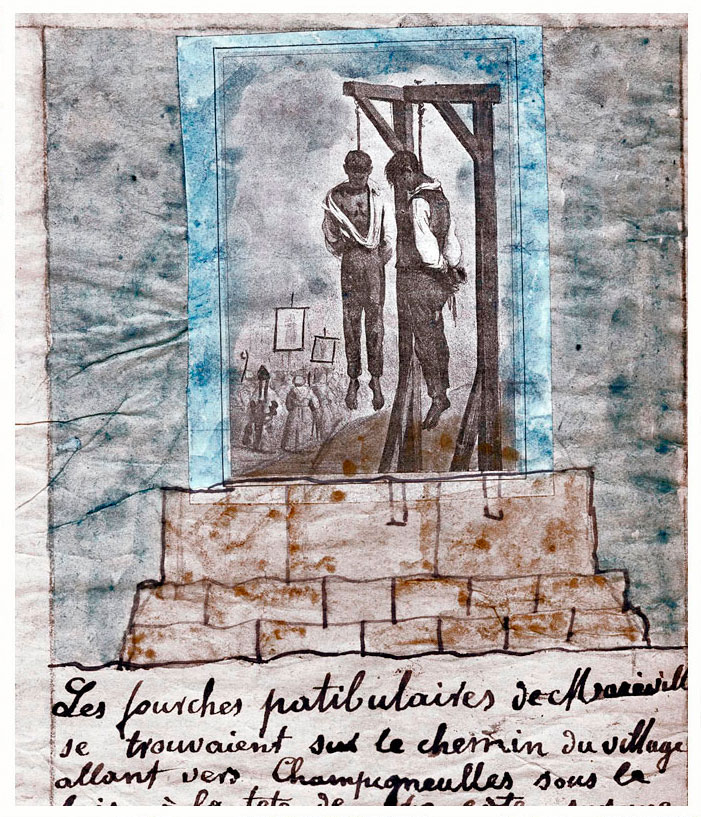 Les fourches patibulaires de Maréville
se trouvaient sur le chemin du village
allant vers Champigneulles sous le